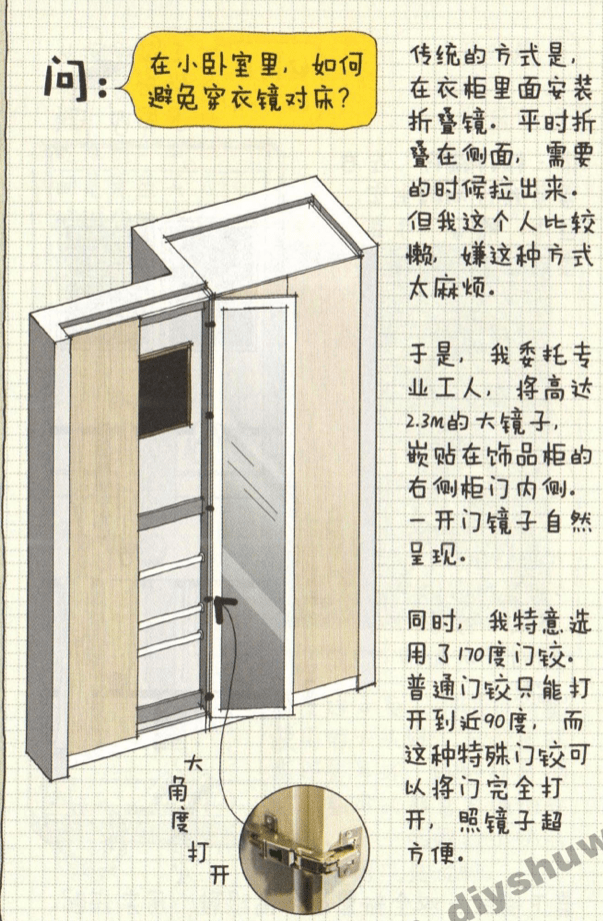 问：
在小卧室里，如何
避免穿衣镜对床？
传统的方式是，
在衣柜里面安装
折叠镜。平时折
叠在侧面，需要
的时候拉出来。
但我这个人比较
懒，嫌这种方式
太麻烦。
于是，我委托专
业工人，将高达
2.3M的大镜子，
嵌贴在饰品柜的
右侧柜门内侧。
一开门镜子自然
呈现。
同时，我特意选
用了170度门铰。
普通门铰只能打
开到近90度，而
这种特殊门铰可
以将门完全打
开，照镜子超
方便。
大角度打开
diyshuw